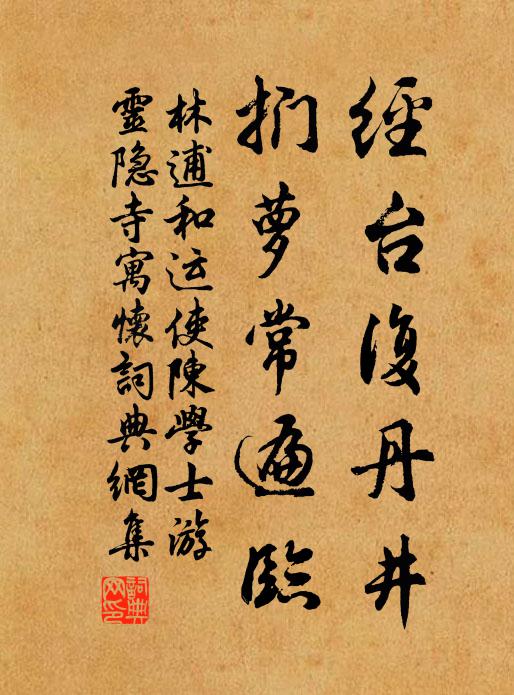 經台復丹井
捫萝常遍臨
林逋和运使陳學士游
靈隐寺寓懷詞典網集
詞典网印